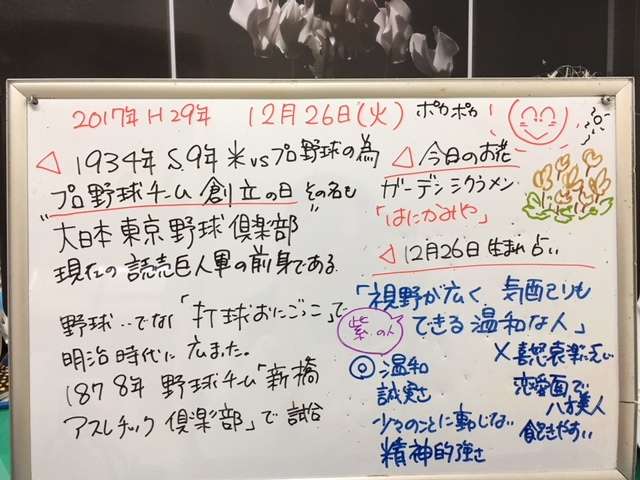 2017年 H29年 12月26日(火) ポカポカ
1934年 S.9年 米vsプロ野球の為
プロ野球チーム創立の日 その名も
"大日本東京野球倶楽部"
現在の読売巨人軍の前身である
野球‥でなく「打球おにごっこ」で
明治時代に広ました。
1878年 野球チーム「新橋
アスレチック倶楽部」で試合
今日のお花
ガーデンシクラメン
「はにかみや」
12月26日生まれ占い
「視野が広く 気配りも
できる温和な人」
紫の人
◎温和
誠実さ
少々のことに動じない
精神的強さ
×喜怒哀楽に乏しい
恋愛面で
八方美人
飽きやすい